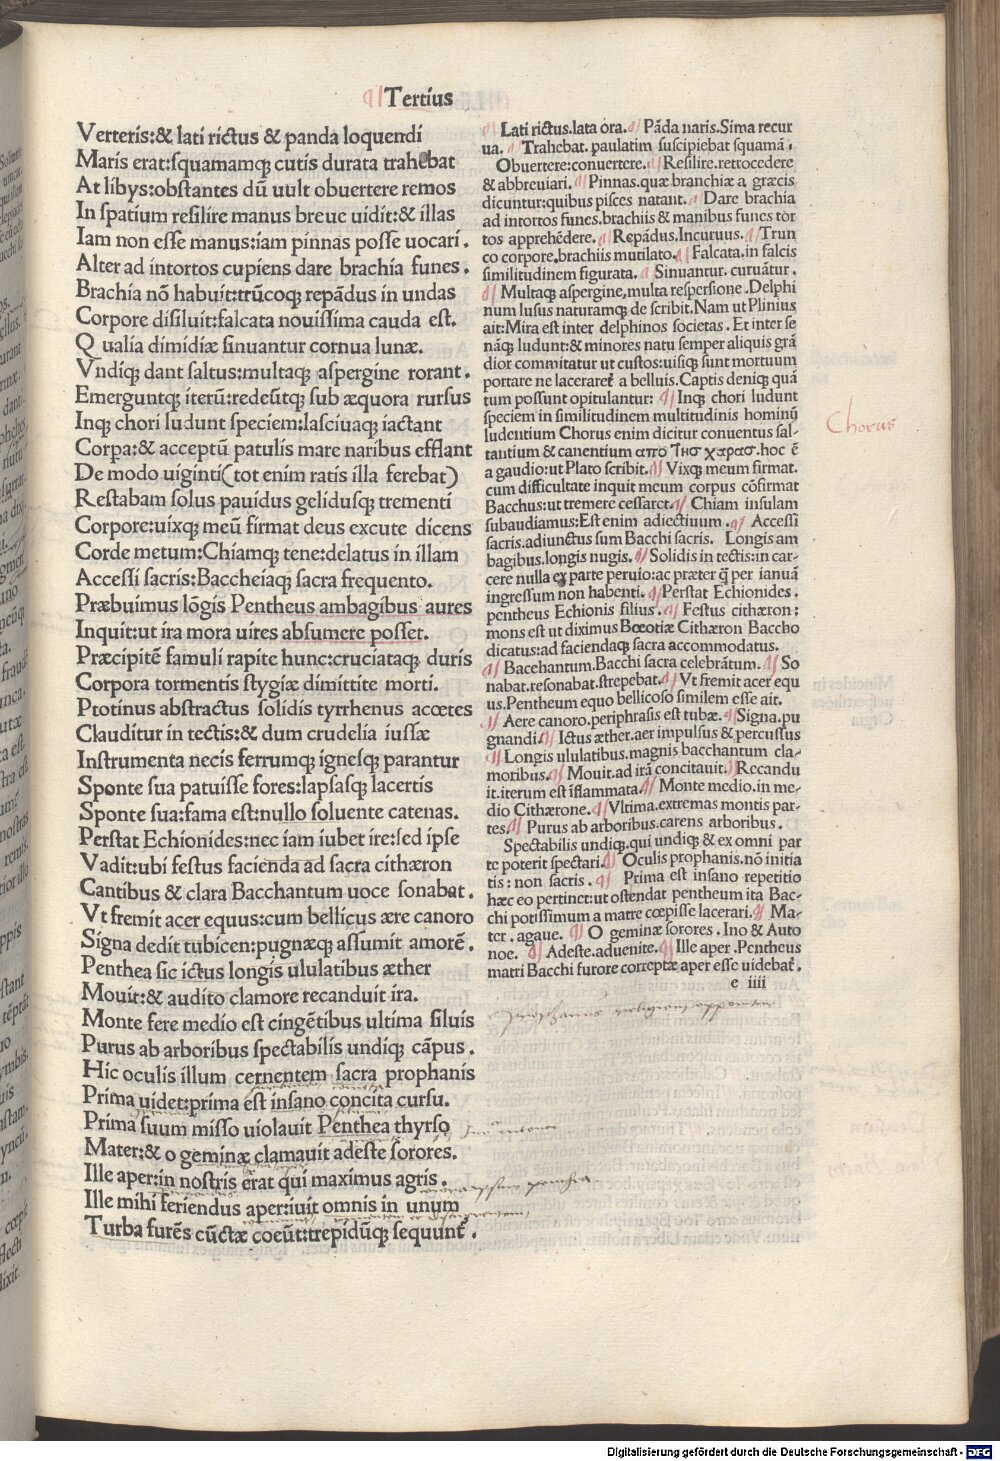 Tertius
Verteris:& lati rictus & panda loquendi
Maris erat:squamamqꝫ cutis durata trahebat
At libys:obstantes dũ uult obuertere remos
In spatium resilire manus breue uidit:& illas
Iam non esse manus:iam pinnas posse uocari.
Alter ad intortos cupiens dare brachia funes.
Brachia nõ habuit:trũcoqꝫ repãdus in undas
Corpore disiluit:falcata nouissima cauda est.
Qualia dimidiæ sinuantur cornua lunæ.
Vndiqꝫ dant saltus:multaqꝫ aspergine rorant.
Emerguntqꝫ iterũ:redeũtqꝫ sub æquora rursus
Inqꝫ chori ludunt speciem:lasciuaqꝫ iactant
Corpa:& acceptũ patulis mare naribus efflant
De modo uiginti(tot enim ratis illa ferebat)
Restabam solus pauidus gelidusqꝫ trementi
Corpore:uixqꝫ meũ firmat deus excute dicens
Corde metum:Chiamqꝫ tene:delatus in illam
Accessi sacris:Baccheiaqꝫ sacra frequento.
Præbuimus lõgis Pentheus ambagibus aures
Inquit:ut ira mora uires absumere posset.
Præcipitẽ famuli rapite hunc:cruciataqꝫ duris
Corpora tormentis stygiæ dimittite morti.
Ptotinus abstractus solidis tyrrhenus acœtes
Clauditur in tectis:& dum crudelia iussæ
Instrumenta necis ferrumqꝫ ignesqꝫ parantur
Sponte sua patuisse fores:lapsasqꝫ lacertis
Sponte sua:fama est:nullo soluente catenas.
Perstat Echionides:nec iam iubet ire:sed ipse
Vadit:ubi festus facienda ad sacra cithæron
Cantibus & clara Bacchantum uoce sonabat.
Vt fremit acer equus:cum bellicus ære canoro
Signa dedit tubicen:pugnæqꝫ assumit amorẽ.
Penthea sic ictus longis ululatibus æther
Mouit:& audito clamore recanduit ira.
Monte fere medio est cingẽtibus ultima siluis
Purus ab arboribus spectabilis undiqꝫ cãpus.
Hic oculis illum cernentem sacra prophanis
Prima uidet:prima est insano concita cursu.
Prima suum misso uiolauit Penthea thyrso
Mater:& o geminæ clamauit adeste sorores.
Ille aper:in nostris erat qui maximus agris.
Ille mihi feriendus aper:iuit omnis in unum
Turba furẽs cũctæ coeũt:trepidũqꝫ sequunt̃.
Lati rictus.lata ora. Pãda naris.Sima recur
ua. Trahebat. paulatim suscipiebat squamã.
Obuertere:conuertere. Resilire.retrocedere
& abbreuiari. Pinnas.quæ branchiæ a græcis
dicuntur:quibus pisces natant. Dare brachia
ad intortos funes.brachiis & manibus funes tor
tos apprehẽdere. Repãdus.Incuruus. Trun
co corpore.brachiis mutilato. Falcata.in falcis
similitudinem figurata. Sinuantur. curuãtur.
Multaqꝫ aspergine,multa respersione.Delphi
num lusus naturamqꝫ describit.Nam ut Plinius
ait:Mira est inter delphinos societas. Et inter se
nãqꝫ ludunt:& minores natu semper aliquis grã
dior commitatur ut custos:uisiqꝫ sunt mortuum
portare ne laceraret̃ a belluis.Captis deniqꝫ quã
tum possunt opitulantur: Inqꝫ chori ludunt
speciem in similitudinem multitudinis hominũ
ludentium Chorus enim dicitur conuentus sal-
tantium & canentium απο τησ χαρασ.hoc ẽ
a gaudio:ut Plato scribit. Vixqꝫ meum firmat.
cum difficultate inquit meum corpus cõfirmat
Bacchus:ut tremere cessaret. Chiam insulam
subaudiamus:Est enim adiectiuum. Accessi
sacris.adiunctus sum Bacchi sacris. Longis am
bagibus.longis nugis. Solidis in tectis:in car-
cere nulla ex parte peruio:ac præter q̃ per ianuã
ingressum non habenti. Perstat Echionides.
pentheus Echionis filius. Festus cithæron:
mons est ut diximus Bœotiæ Cithæron Baccho
dicatus:ad faciendaqꝫ sacra accommodatus.
Bacchantum.Bacchi sacra celebrãtum. So
nabat.resonabat.strepebat. Vt fremit acer equ
us.Pentheum equo bellicoso similem esse ait.
Aere canoro.periphrasis est tubæ. Signa.pu
gnandi. Ictus æther.aer impulsus & percussus
Longis ululatibus.magnis bacchantum cla-
moribus. Mouit.ad irã concitauit. Recandu
it.iterum est iflammata. Monte medio.in me-
dio Cithærone. Vltima.extremas montis par-
tes. Purus ab arboribus.carens arboribus.
Spectabilis undiqꝫ.qui undiqꝫ & ex omni par
te poterit spectari. Oculis prophanis.nõ initia
tis: non sacris. Prima est insano repetitio
hæc eo pertinet:ut ostendat pentheum ita Bac-
chi potissimum a matre cœpisse lacerari. Ma-
ter. agaue. O geminæ sorores. Ino & Auto
noe. Adeste.aduenite. Ille aper.Pentheus
matri Bacchi furore correptæ aper esse uidebat̃.
e iiii
Chorus
Digitalisierung gefördert durch die Deutsche Forschungsgemeinschaft - DFG